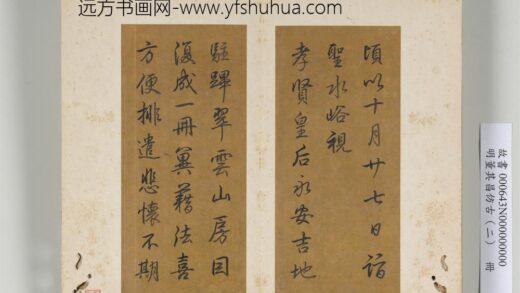 远方书画网-www.yfshuhua.com
頃以十月廿七日詣
聖水峪視
孝賢皇后永安吉地
駐蹕翠雲山房因
復成一冊冀藉法喜
方便排遣悲懷不期
故書 000643N000000000
明董其昌仿古(二) 冊